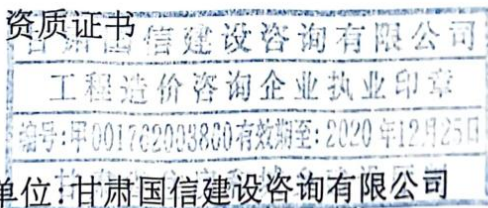 资质证书
甘肃国信建设咨询有限公司
工程造价咨询企业执业印章
编号:甲001762003800有效期至:2020年12月25日
单位:甘肃国信建设咨询有限公司